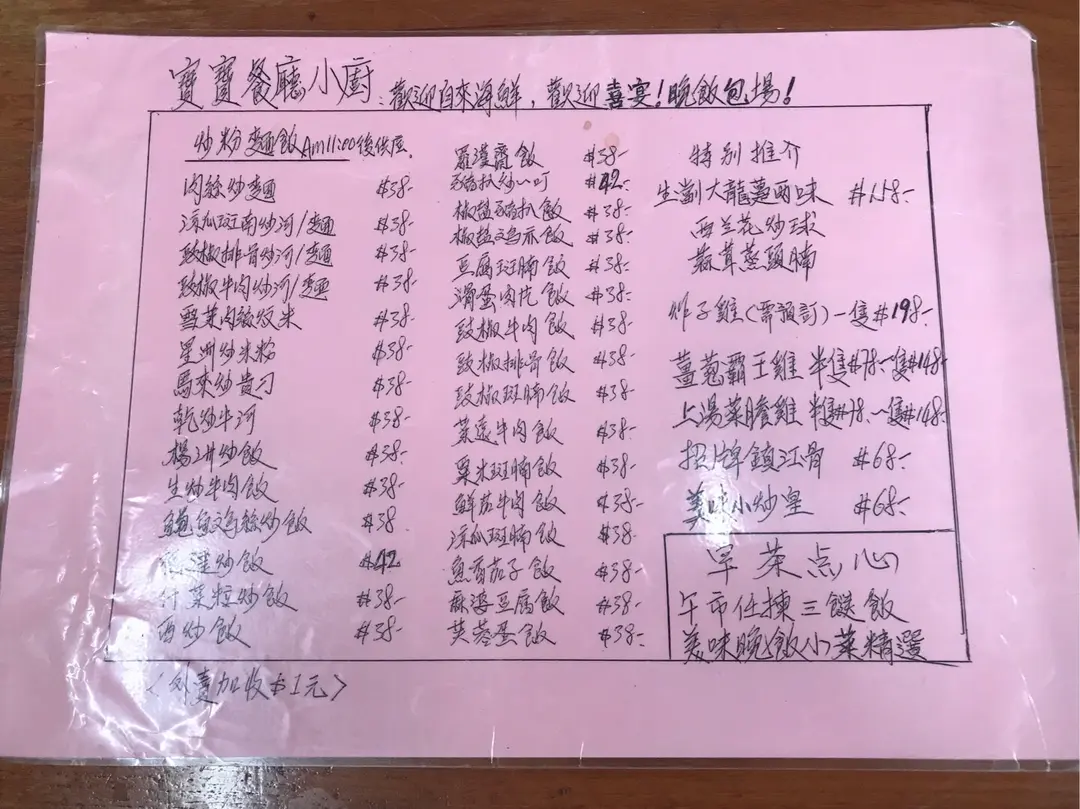 寶寶餐廳小廚:歡迎自來海鮮,歡迎喜宴!晚飯包場!
炒粉麵飯Am11:00後供應
肉絲炒麵 $38-
涼瓜斑腩炒河/麵 $38-
豉椒排骨炒河/麵 $38-
豉椒牛肉炒河/麵 $38-
雪菜肉絲炆米 $38-
星洲炒米粉 $38-
馬來炒貴刁 $38-
乾炒牛河 $38-
楊洲炒飯 $38-
生炒牛肉飯 $38-
鹹魚鸡絲炒飯 $38
炒飯 $42
什菜粒炒飯 $38-
西炒飯 $38-
羅漢齋飯 $38-
豬扒炒一叮 $42-
椒盐豬扒飯 $38-
椒盐鸡飯 $38-
豆腐斑腩飯 $38-
滑蛋肉片飯 $38-
豉椒牛肉飯 $38-
豉椒排骨飯 $38-
豉椒斑腩飯 $38-
菜遠牛肉飯 $38-
粟米斑腩飯 $38-
鮮茄牛肉飯 $38-
涼瓜斑腩飯 $38-
魚香茄子飯 $38-
麻婆豆腐飯 $38-
芙蓉蛋飯 $38-
特別推介
生劏大龍躉兩味 $158-
西兰花炒球
蒜茸蒸頭腩
炸子雞(需預訂)一隻$198-
薑蔥霸王雞 半隻$78-一隻$148-
上湯菜膽雞 半隻$78-一隻$148-
招牌鎮江骨 $68-
美味小炒皇 $68-
早茶点心
午市任揀三餸飯
美味晚飯小菜精選
〈外賣加收$1元〉